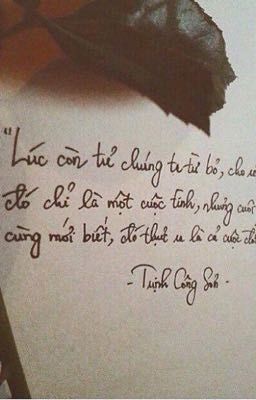 "Lúc còn trẻ chúng ta từ bỏ, cho
đó chỉ là một cuộc tình, nhưng cuối
cùng mới biết, đó thực ra là cả cuộc
- Trịnh Công Sơn -